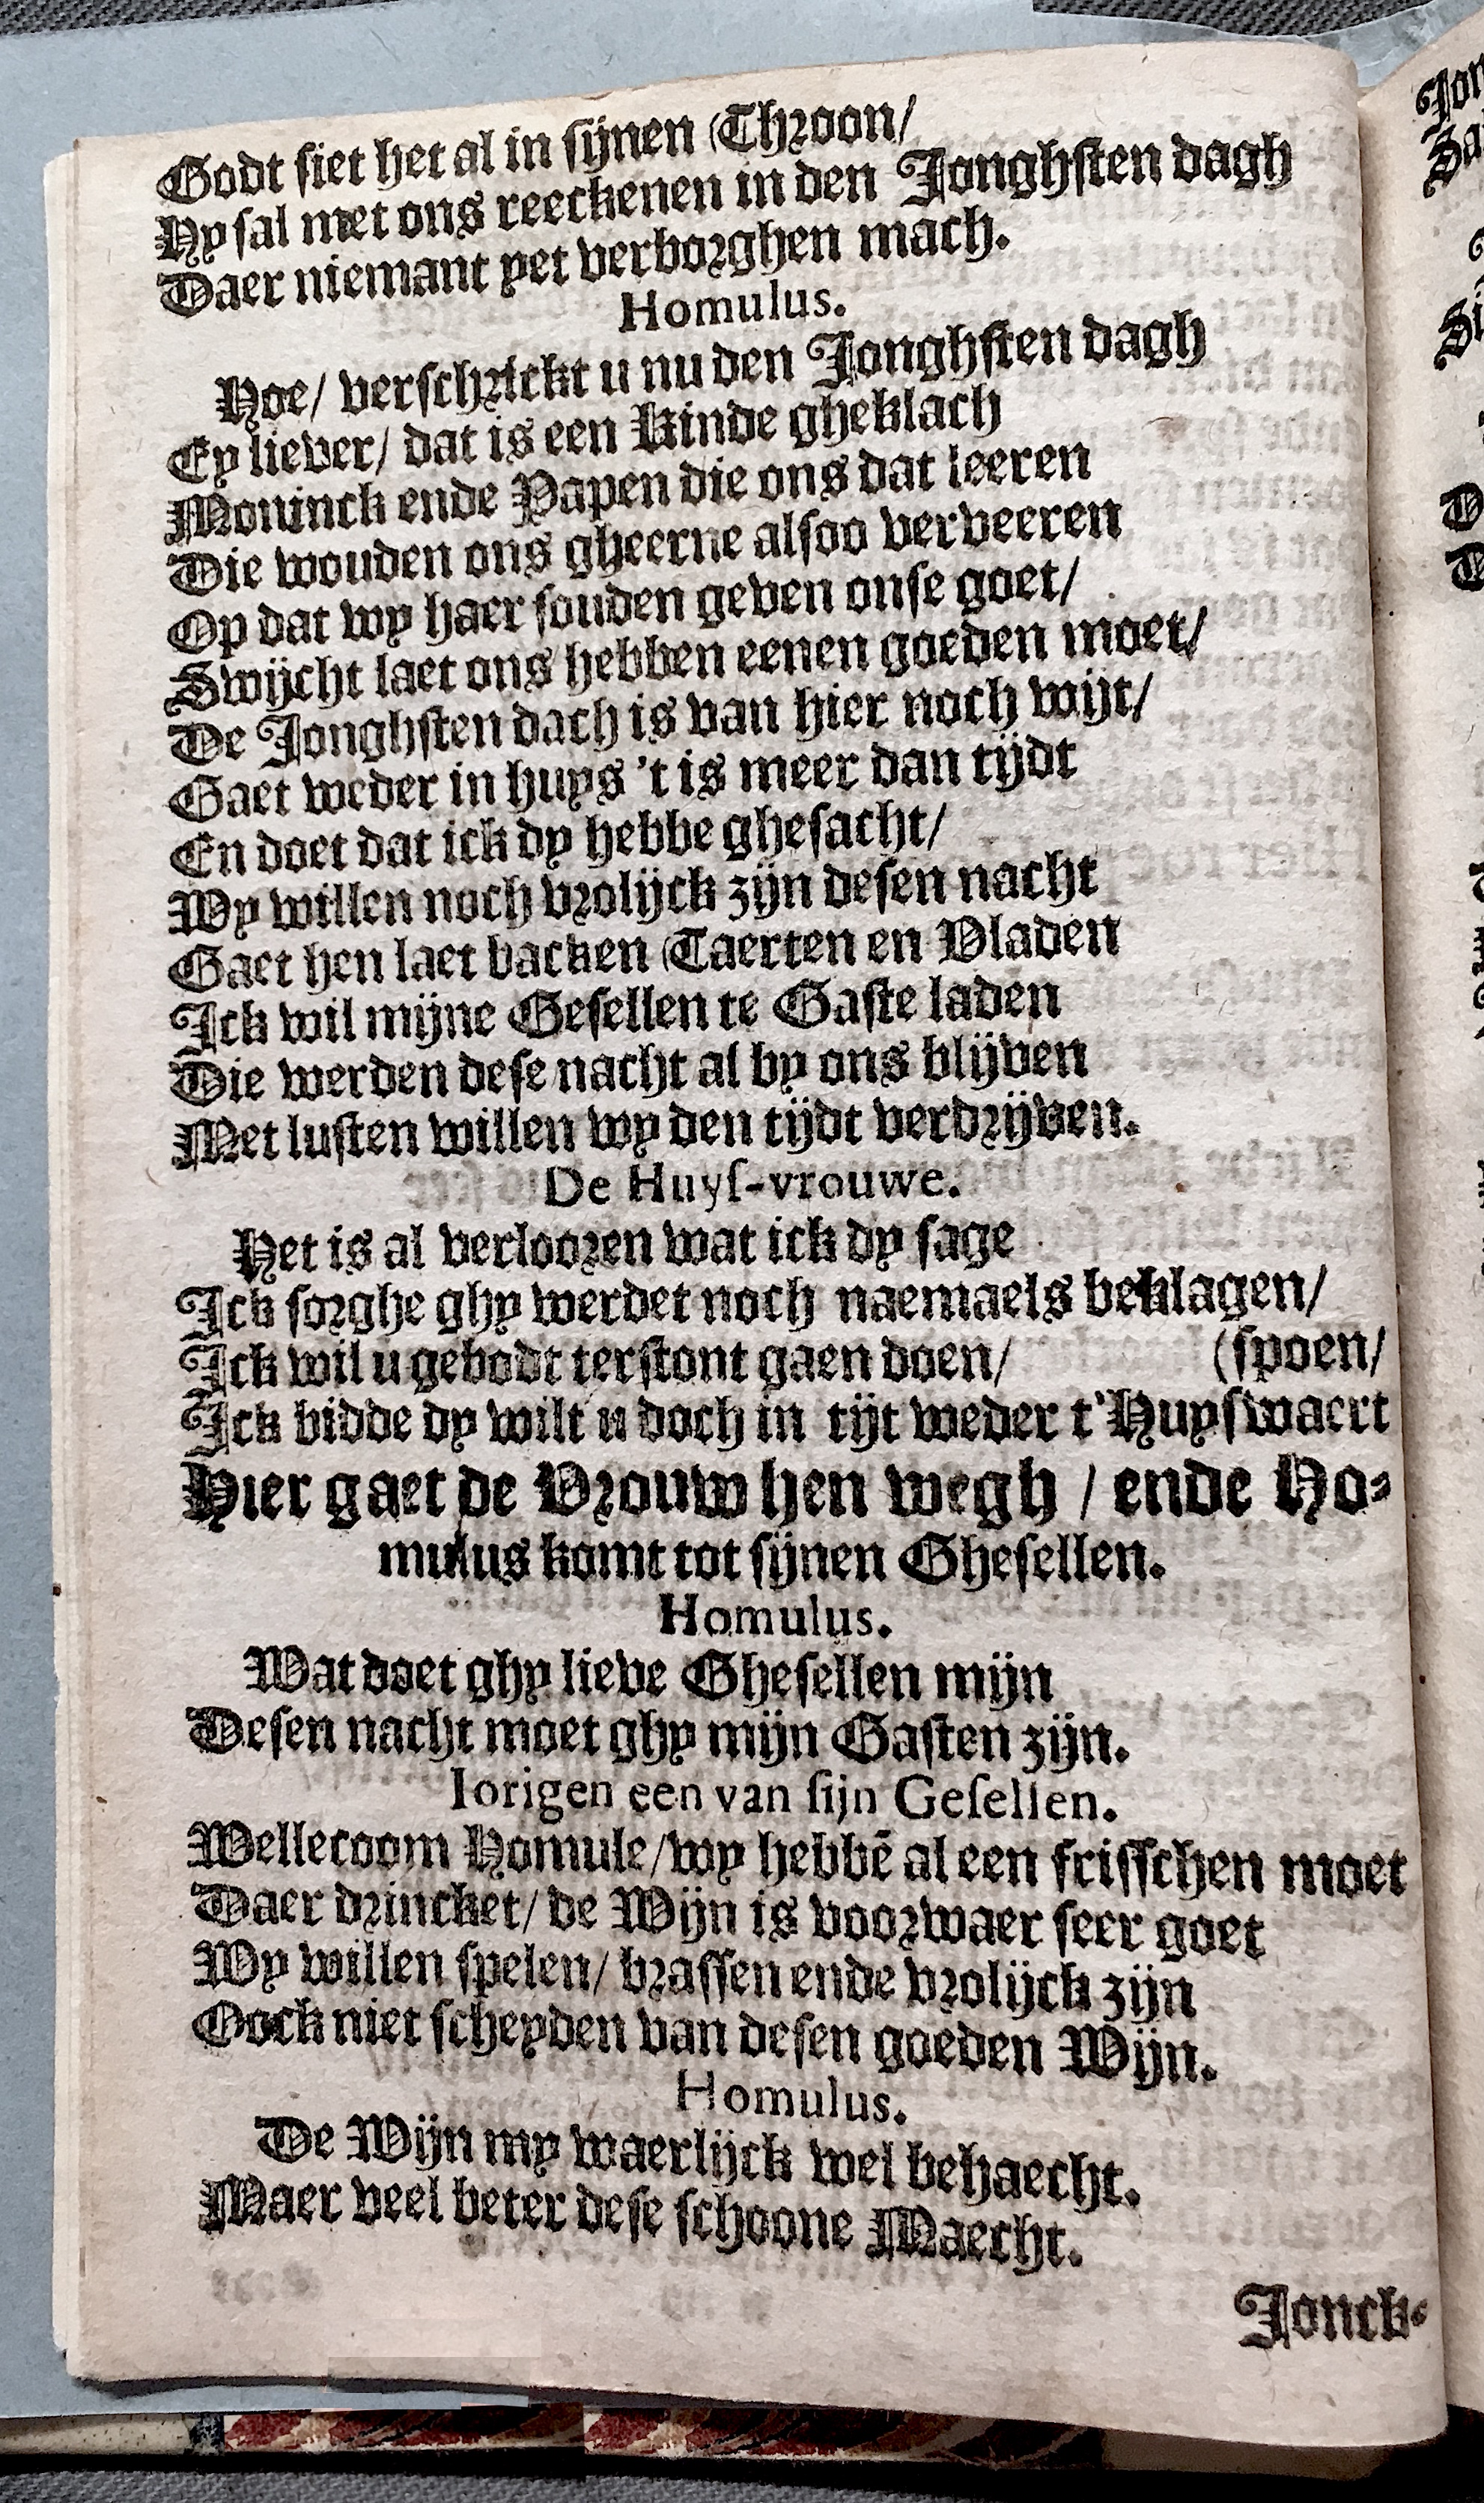 Godt siet het al in sijnen Throon/
Hy sal met ons reeckenen in den Jonghsten dagh
Daer niemant yet verborghen mach.
Homulus.
Hoe/ verschrickt u nu den Jonghsten dagh
Ey liever/ dat is een Kinde gheklach
Moninck ende Papen die ons dat leeren
Die wouden ons gheerne alsoo verveeren
Op dat wy haer souden geven onse goet/
Swijcht laet ons hebben eenen goeden moet/
De Jonghsten dach is van hier noch wijt/
Gaet weder in huys 't is meer dan tijdt
En doet dat ick dy hebbe ghesacht/
Wy willen noch vrolijck zijn desen nacht
Gaet hen laet backen Taerten en Vladen
Ick wil mijne Gesellen te Gaste laden
Die werden dese nacht al by ons blijven
Met lusten willen wy den tijdt verdrijven.
De Huys-vrouwe.
Het is al verlooren wat ick dy sage
Ick sorghe ghy werdet noch naemaels beklagen/
Ick wil u gebodt terstont gaen doen/ (spoen/
Ick bidde dy wilt u doch in tijt weder t'Huyswaert
Hier gaet de Vrouw hen wegh / ende Ho-
mulus komt tot sijnen Ghesellen.
Homulus.
Wat doet ghy lieve Ghesellen mijn
Desen nacht moet ghy mijn Gasten zijn.
Iorigen een van sijn Gesellen.
Wellecoom Homule/ wy hebbē al een frisschen moet
Daer drincket/ de Wijn is voorwaer seer goet
Wy willen spelen/ brassen ende vrolijck zijn
Oock niet scheyden van desen goeden Wijn.
Homulus.
De Wijn my waerlijck wel behaecht.
Maer veel beter dese schoone Maecht.
Jonck-